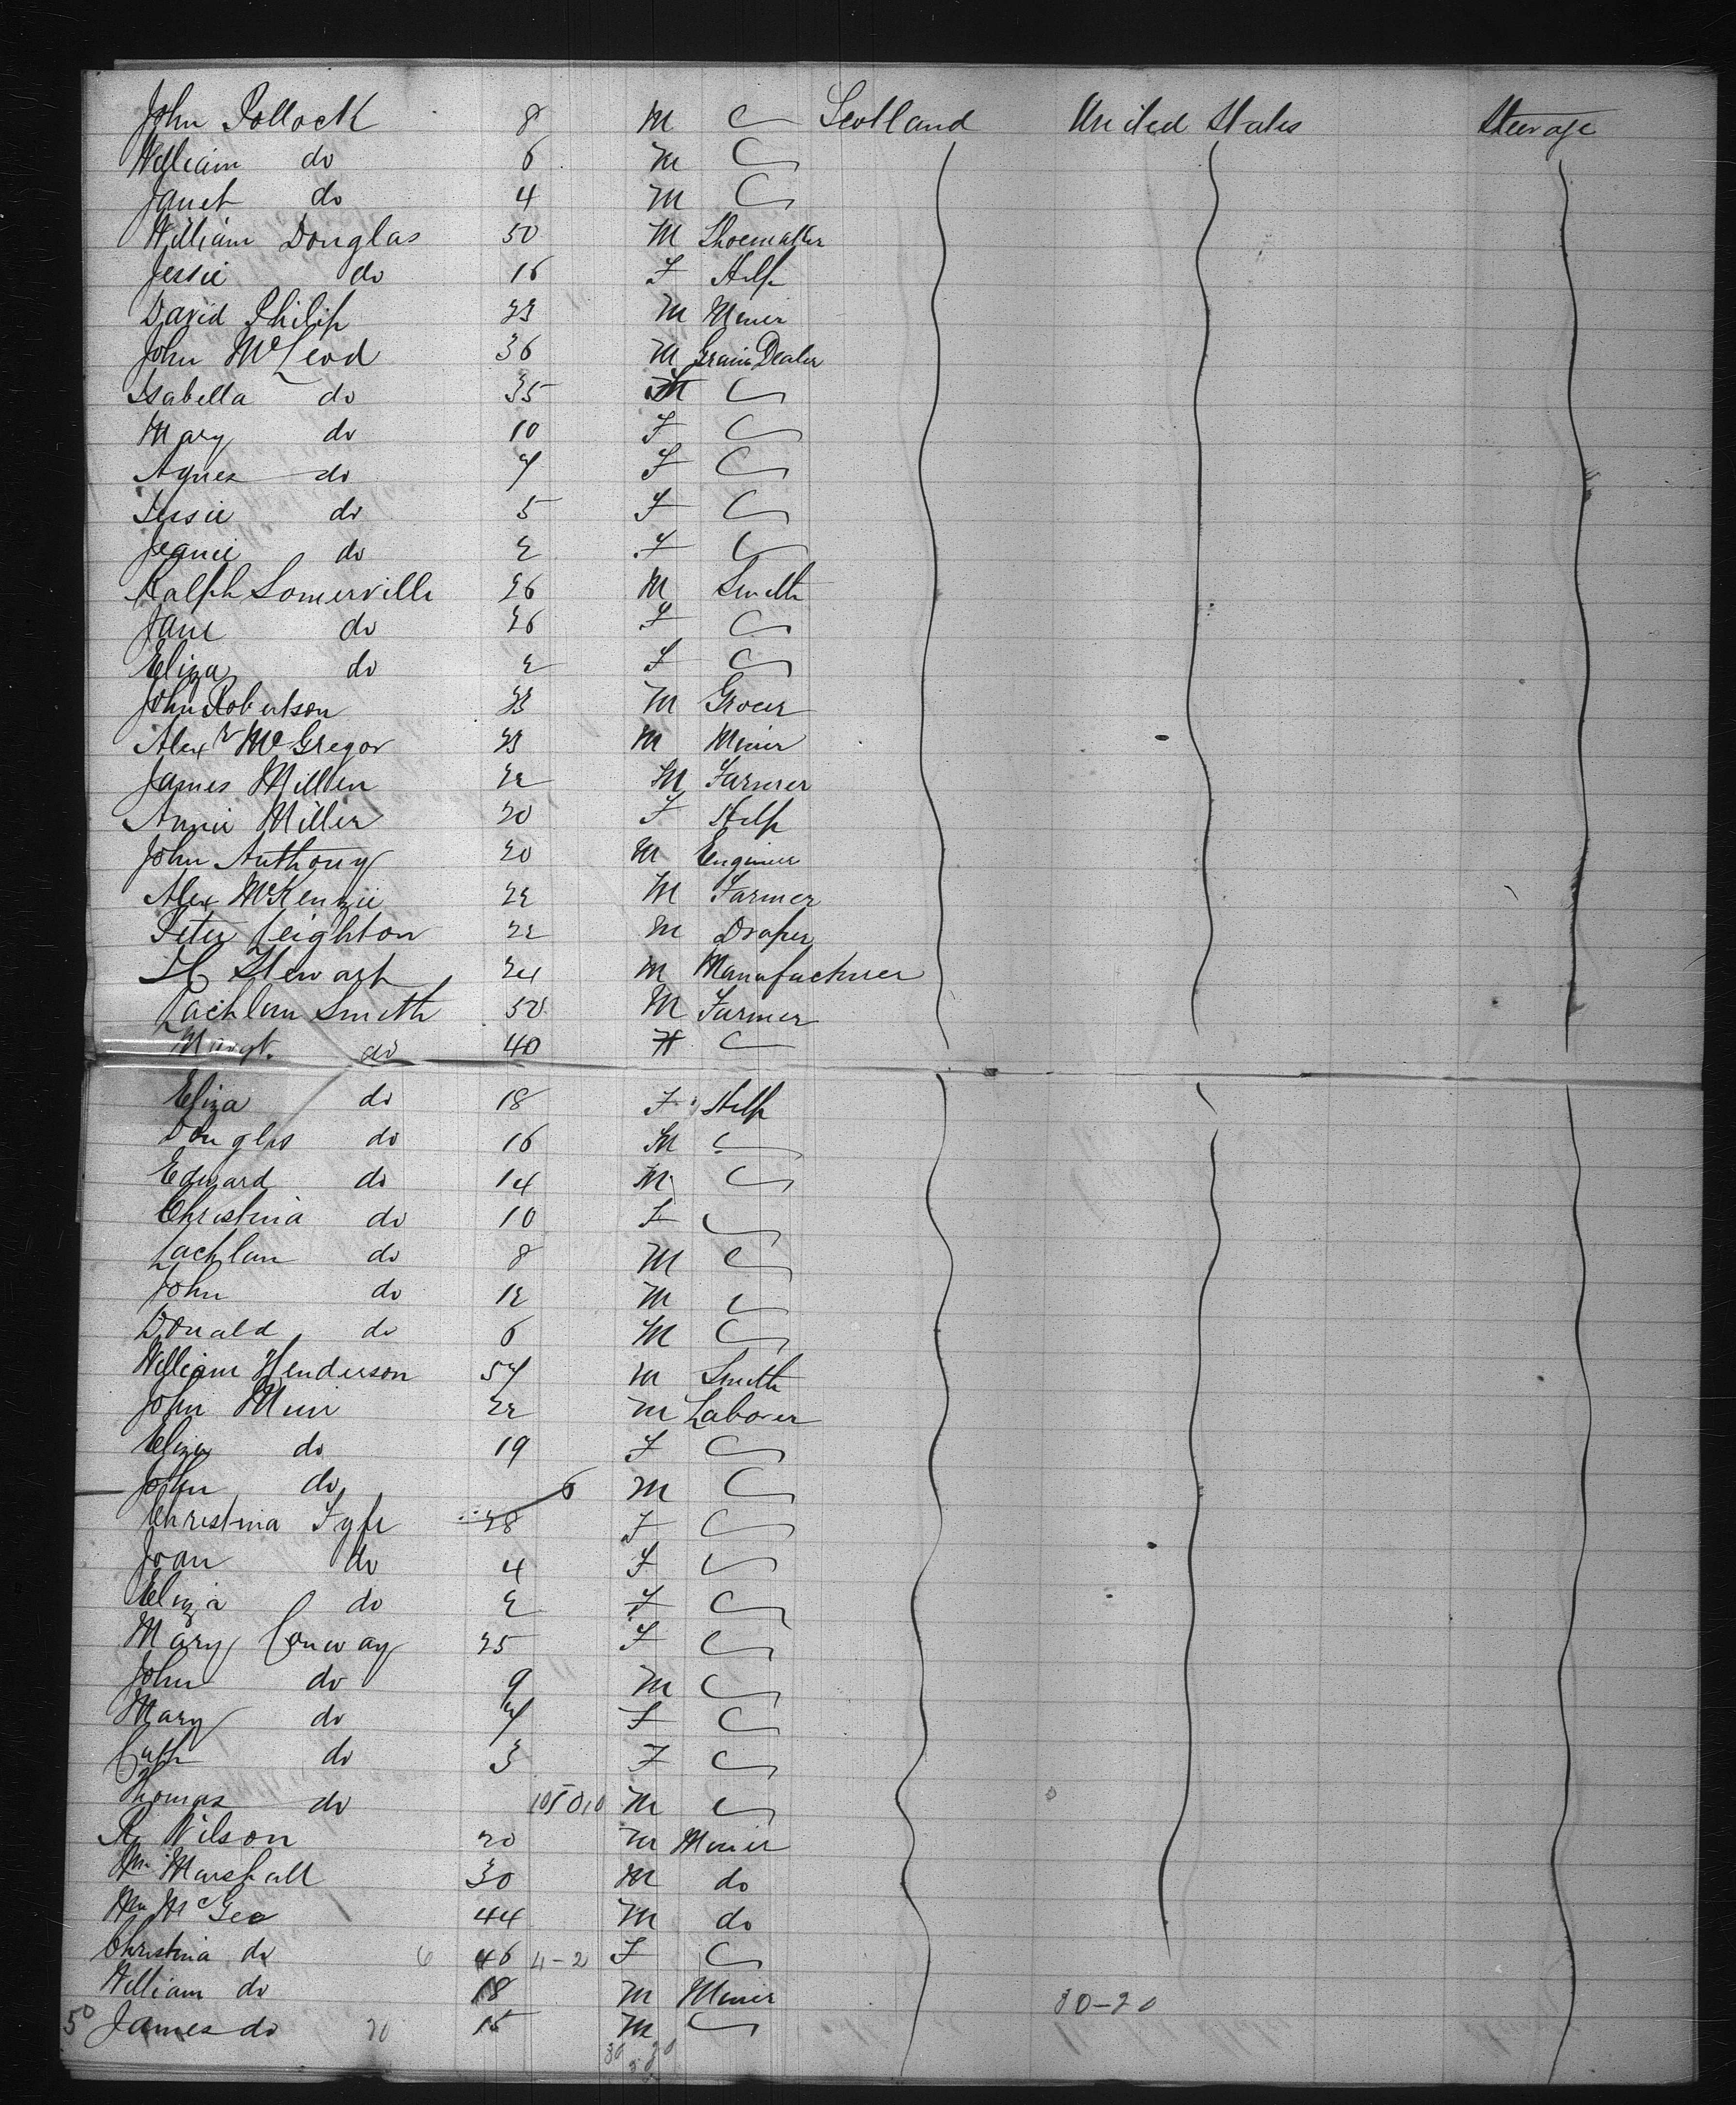 John Pollock 8 M Scotland United States Steerage
William do 6 M
Janet do 4 M
William Douglas 50 M Shoemaker
Jessie do 16 F Help
David Philip 23 M Miner
John McLeod 36 M Grain Dealer
Isabella do 35
Mary do 10 F
Agnes do 7 F
Jessie do 5 F
Jeanie do 2 F
Ralph Somerville 26 M Smith
Jane do 26 F
Eliza do 2 F
John Robertson 23 M Grocer
Alexr McGregor 23 M Miner
James Millen 22 M Farmer
Annie Miller 20 F Help
John Anthony 20 M Engineer
Alex McKenzie 22 M Farmer
Peter Leighton 22 M Draper
H Stewart 24 M Manufacturer
Lachlan Smith 50 M Farmer
Margt. do 40
Eliza do 18 F Help
Douglas do 16 M
Edward do 14 M
Christina do 10 F
Lachlan do 8 M
John do 12 M
Donald do 6 M
William Henderson 57 M Smith
John Muir 22 M Laborer
Eliza do 19 F
John do 6 M
Christina Fyfe 28 F
Joan do 4 F
Eliza do 2 F
Mary Conway 25 F
John do 9 M
Mary do 7 F
Cath do 3 F
Thomas do M
A Wilson 20 M Miner
Wm Marshall 30 M do
Wm McGee 44 M do
Christina do 6 46 4-2 F
William do 18 M Miner 30-20
50 James do 20 15 M
30 20